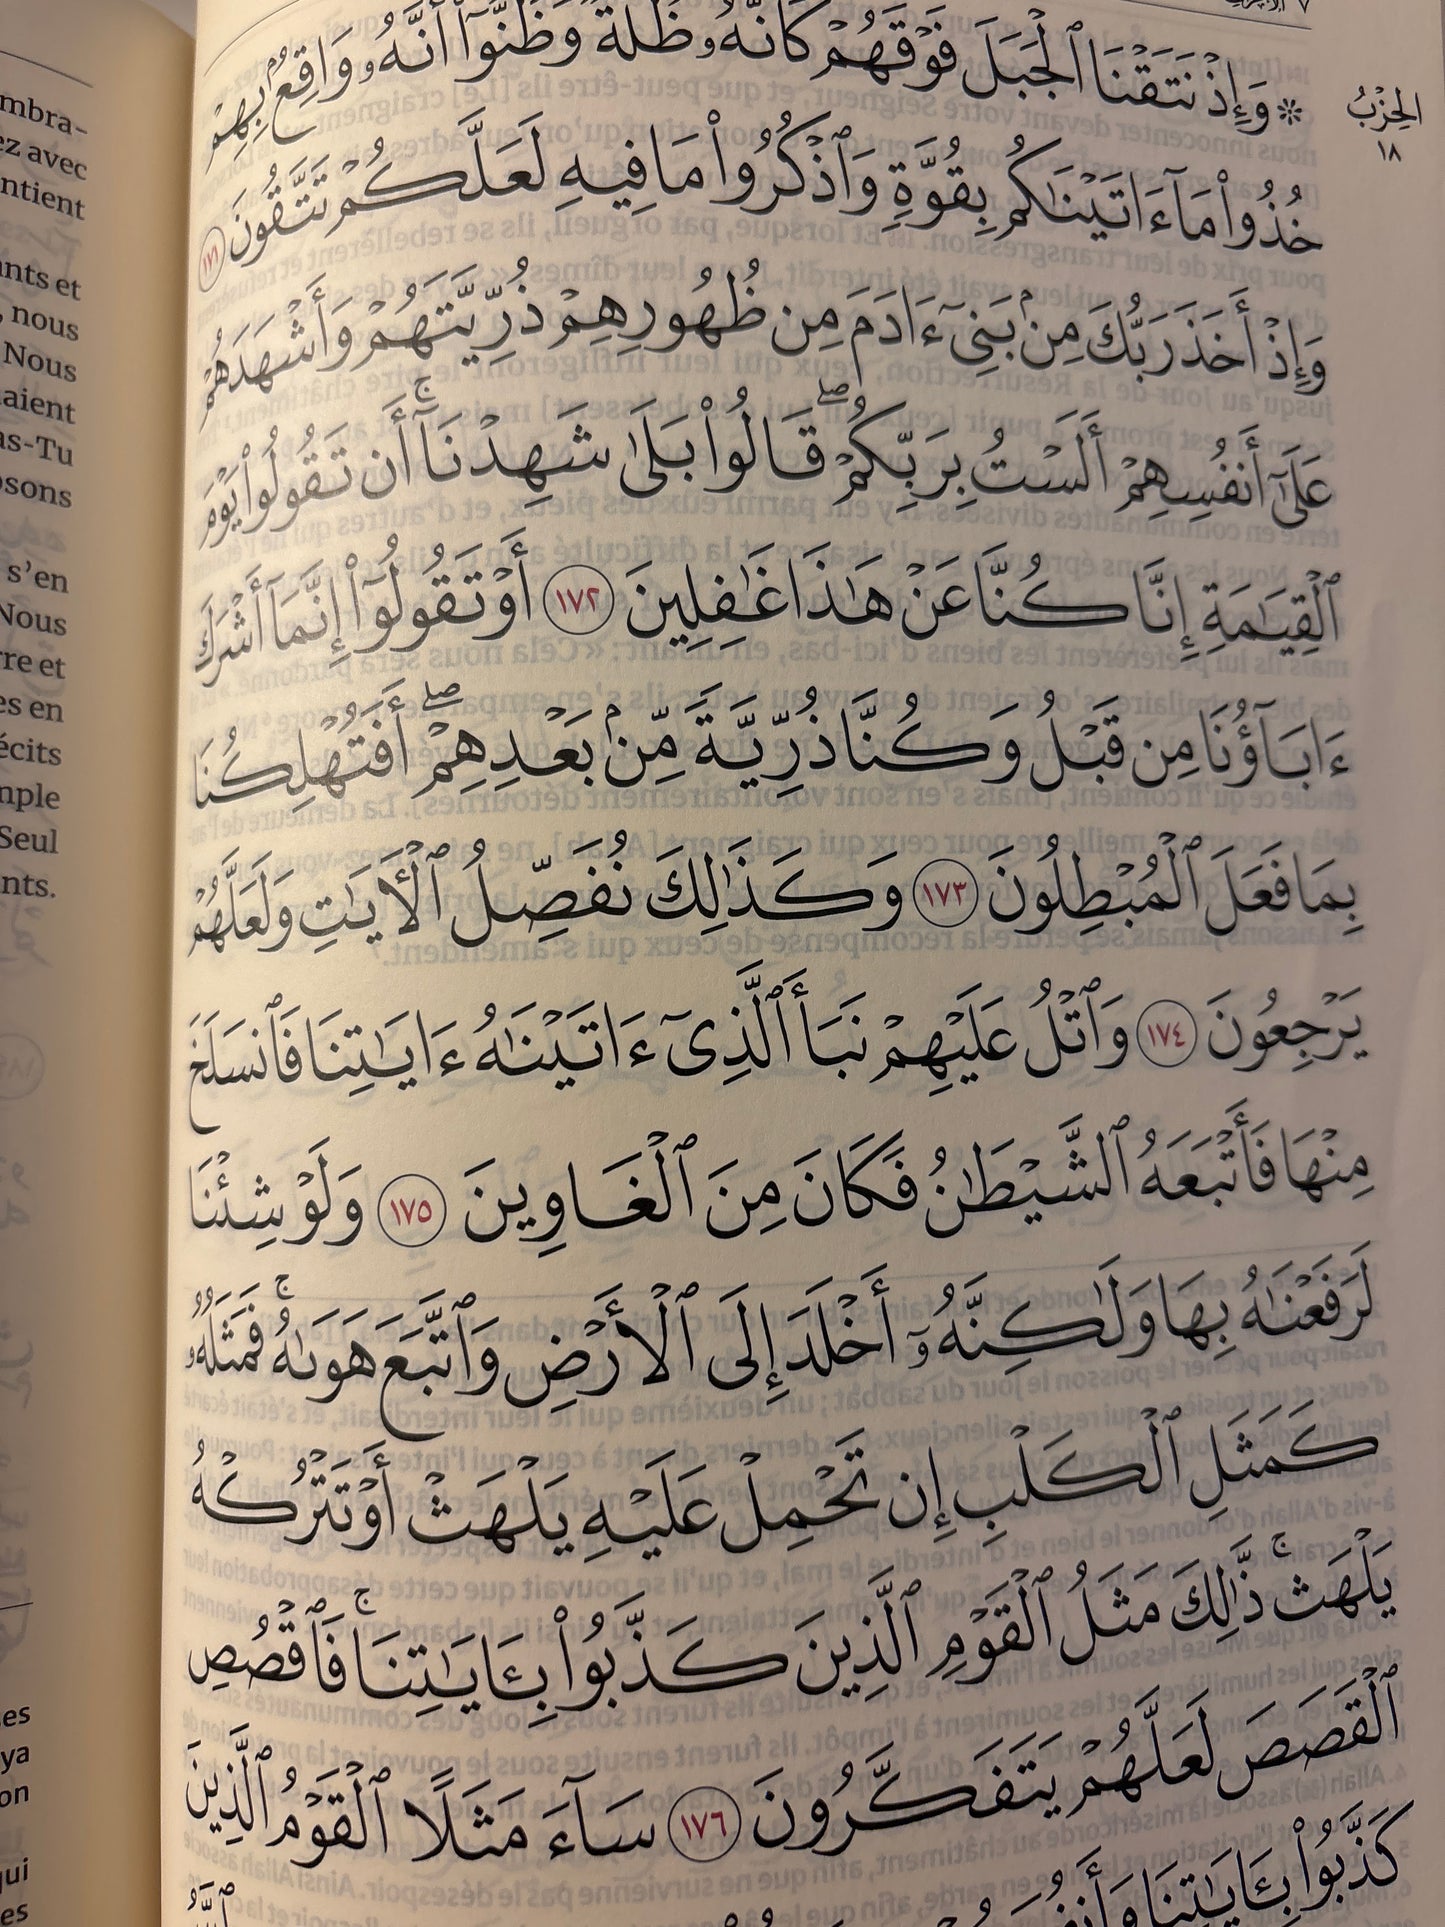 الحِزْبُ
١٨
۞ وَإِذْ نَتَقْنَا ٱلْجَبَلَ فَوْقَهُمْ كَأَنَّهُۥ ظُلَّةٌ وَظَنُّوٓا۟ أَنَّهُۥ وَاقِعٌۢ بِهِمْ
خُذُوا۟ مَآ ءَاتَيْنَـٰكُم بِقُوَّةٍ وَٱذْكُرُوا۟ مَا فِيهِ لَعَلَّكُمْ تَتَّقُونَ ١٧١
وَإِذْ أَخَذَ رَبُّكَ مِنۢ بَنِىٓ ءَادَمَ مِن ظُهُورِهِمْ ذُرِّيَّتَهُمْ وَأَشْهَدَهُمْ
عَلَىٰٓ أَنفُسِهِمْ أَلَسْتُ بِرَبِّكُمْ ۖ قَالُوا۟ بَلَىٰ شَهِدْنَآ ۚ أَن تَقُولُوا۟ يَوْمَ
ٱلْقِيَـٰمَةِ إِنَّا كُنَّا عَنْ هَـٰذَا غَـٰفِلِينَ ١٧٢ أَوْ تَقُولُوٓا۟ إِنَّمَآ أَشْرَكَ
ءَابَآؤُنَا مِن قَبْلُ وَكُنَّا ذُرِّيَّةً مِّنۢ بَعْدِهِمْ ۖ أَفَتُهْلِكُنَا
بِمَا فَعَلَ ٱلْمُبْطِلُونَ ١٧٣ وَكَذَٰلِكَ نُفَصِّلُ ٱلْأَيَـٰتِ وَلَعَلَّهُمْ
يَرْجِعُونَ ١٧٤ وَٱتْلُ عَلَيْهِمْ نَبَأَ ٱلَّذِىٓ ءَاتَيْنَـٰهُ ءَايَـٰتِنَا فَٱنسَلَخَ
مِنْهَا فَأَتْبَعَهُ ٱلشَّيْطَـٰنُ فَكَانَ مِنَ ٱلْغَاوِينَ ١٧٥ وَلَوْ شِئْنَا
لَرَفَعْنَـٰهُ بِهَا وَلَـٰكِنَّهُۥٓ أَخْلَدَ إِلَى ٱلْأَرْضِ وَٱتَّبَعَ هَوَىٰهُ ۚ فَمَثَلُهُۥ
كَمَثَلِ ٱلْكَلْبِ إِن تَحْمِلْ عَلَيْهِ يَلْهَثْ أَوْ تَتْرُكْهُ
يَلْهَث ۚ ذَّٰلِكَ مَثَلُ ٱلْقَوْمِ ٱلَّذِينَ كَذَّبُوا۟ بِـَٔايَـٰتِنَا ۚ فَٱقْصُصِ
ٱلْقَصَصَ لَعَلَّهُمْ يَتَفَكَّرُونَ ١٧٦ سَآءَ مَثَلًا ٱلْقَوْمُ ٱلَّذِينَ
كَذَّبُوا۟ بِـَٔايَـٰتِنَا
mbra-
ez avec
ntient
ants et
, nous
Nous
aient
as-Tu
osons
s’en
Nous
rre et
es en
écits
mple
Seul
nts.
es
ya
on
qui
es